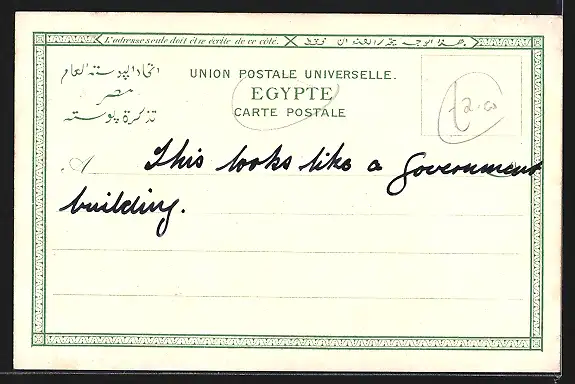 L'adresse seule doit être écrite de ce côté.
اتحاد البوسته العام
مصر
تذكرة بوسته
UNION POSTALE UNIVERSELLE.
EGYPTE
CARTE POSTALE
A This looks like a Government
building.